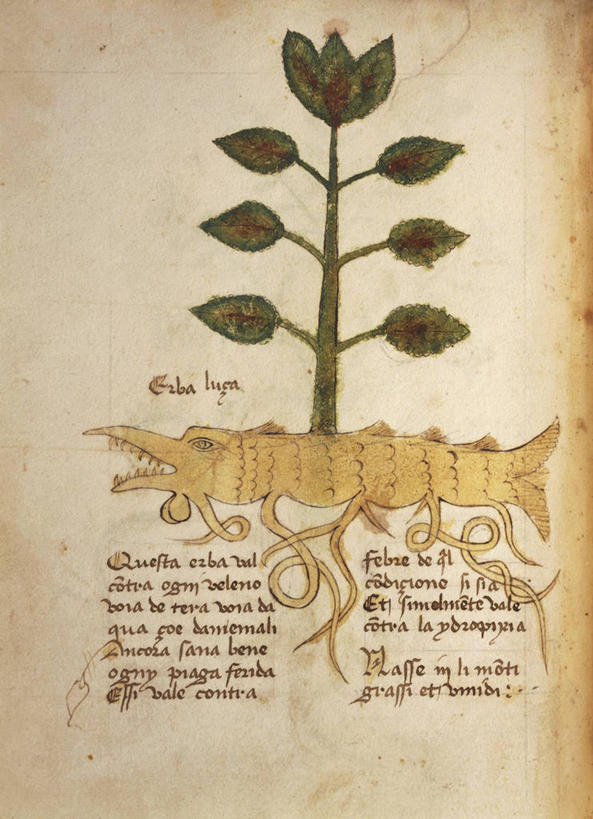 Erba luça
Questa erba val
cõtra ogni veleno
voia de tera voia da
qua çoe daniemali
Ancora sana bene
ogny piaga ferida
Essi vale contra
febre de q̃l
cõdiçione si sia
Et similmẽte vale
cõtra la ydropixia
Nasse in li mõti
grassi et vmidi :~